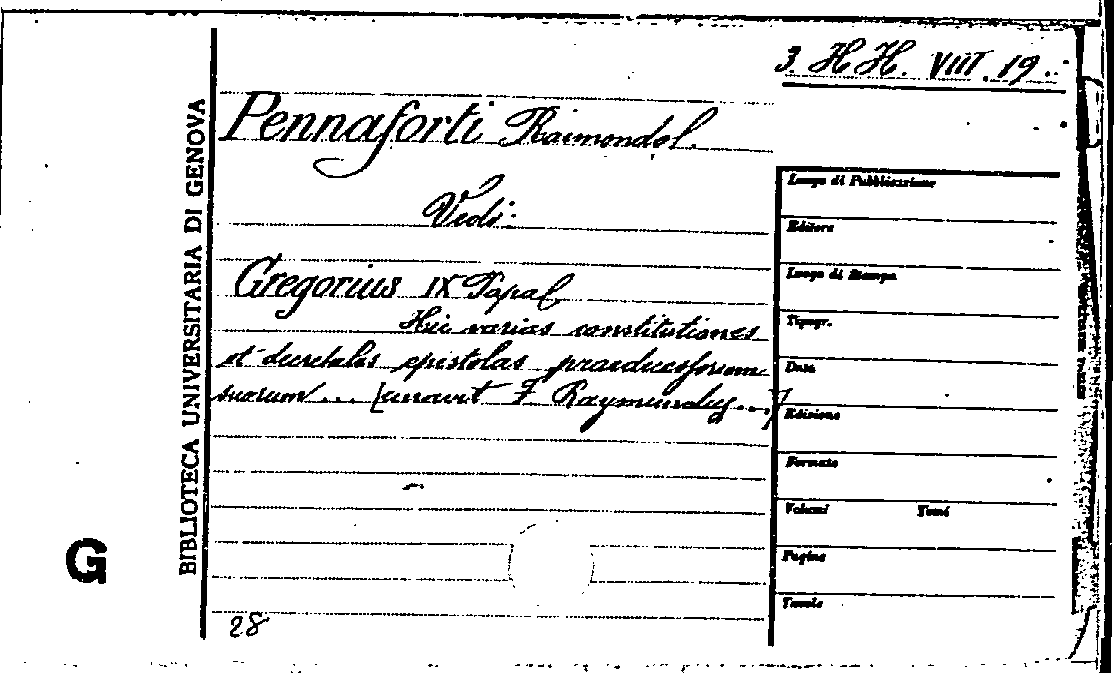 3. H H. VIII. 19
Pennaforti Raimondo(.
Vedi:
Gregorius IX Papa(
Hic varias constitutiones
et decretales epistolas praedecessorum
suorum ... [curavit F. Raymundus ...]
28
BIBLIOTECA UNIVERSITARIA DI GENOVA
G
Luogo di Pubblicazione
Editore
Luogo di Stampa
Tipogr.
Data
Edizione
Formato
Volumi Tomi
Pagine
Tavole